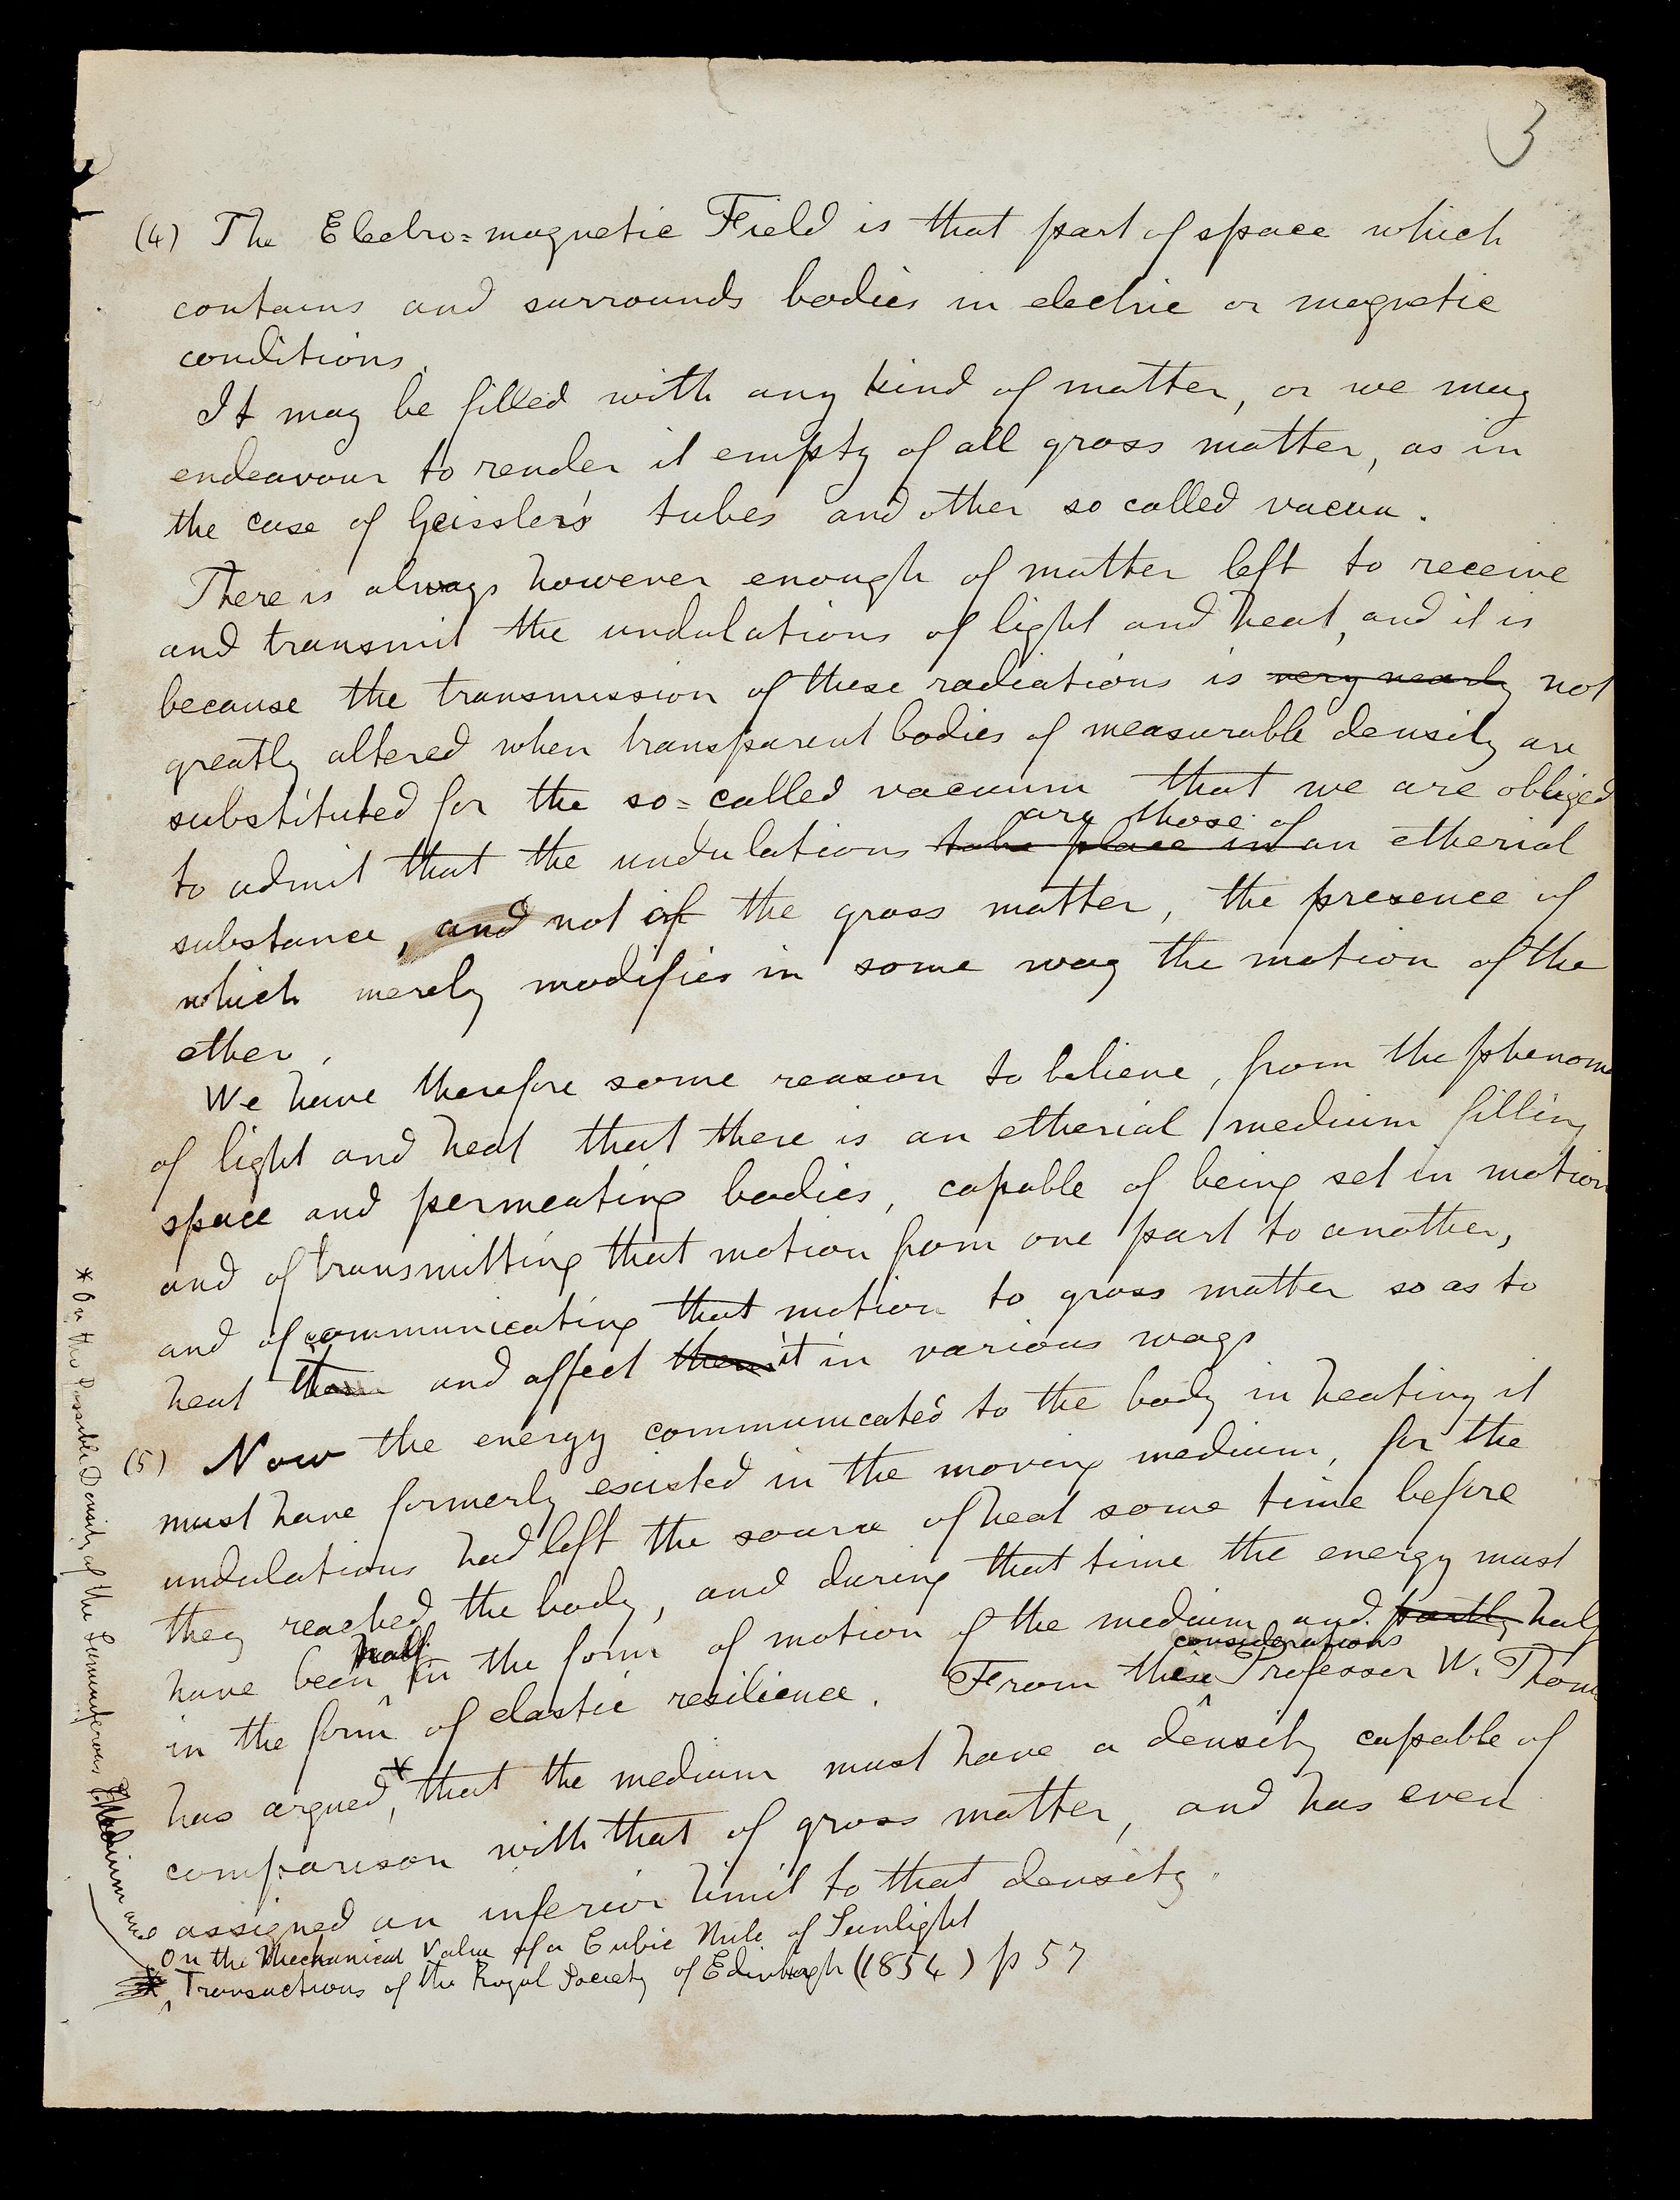 3
(4) The Electro=magnetic Field is that part of space which
contains and surrounds bodies in electric or magnetic
conditions.
It may be filled with any kind of matter, or we may
endeavour to render it empty of all gross matter, as in
the case of Geissler's tubes and other so called vacua.
There is always however enough of matter left to receive
and transmit the undulations of light and heat, and it is
because the transmission of these radiations is very nearly not
greatly altered when transparent bodies of measurable density are
substituted for the so=called vacuum that we are obliged
are those of
to admit that the undulations take place in an etherial
substance, and not of the gross matter, the presence of
which merely modifies in some way the motion of the
ether.
We have therefore some reason to believe, from the phenome
of light and heat that there is an etherial medium filling
space and permeating bodies, capable of being set in motion
and of transmitting that motion from one part to another,
and of communicating that motion to gross matter so as to
heat them and affect them it in various ways
(5) Now the energy communicated to the body in heating it
must have formerly existed in the moving medium, for the
undulations had left the source of heat some time before
they reached the body, and during that time the energy must
half
have been in the form of motion of the medium and partly half
considerations
in the form of elastic resilience. From these Professor W. Thom
has argued,* that the medium must have a density capable of
comparison with that of gross matter, and has even
assigned an inferior limit to that density.
* On the Possible Density of the Luminiferous Medium and
On the Mechanical Value of a Cubic Mile of Sunlight
Transactions of the Royal Society of Edinburgh (1854) p 57